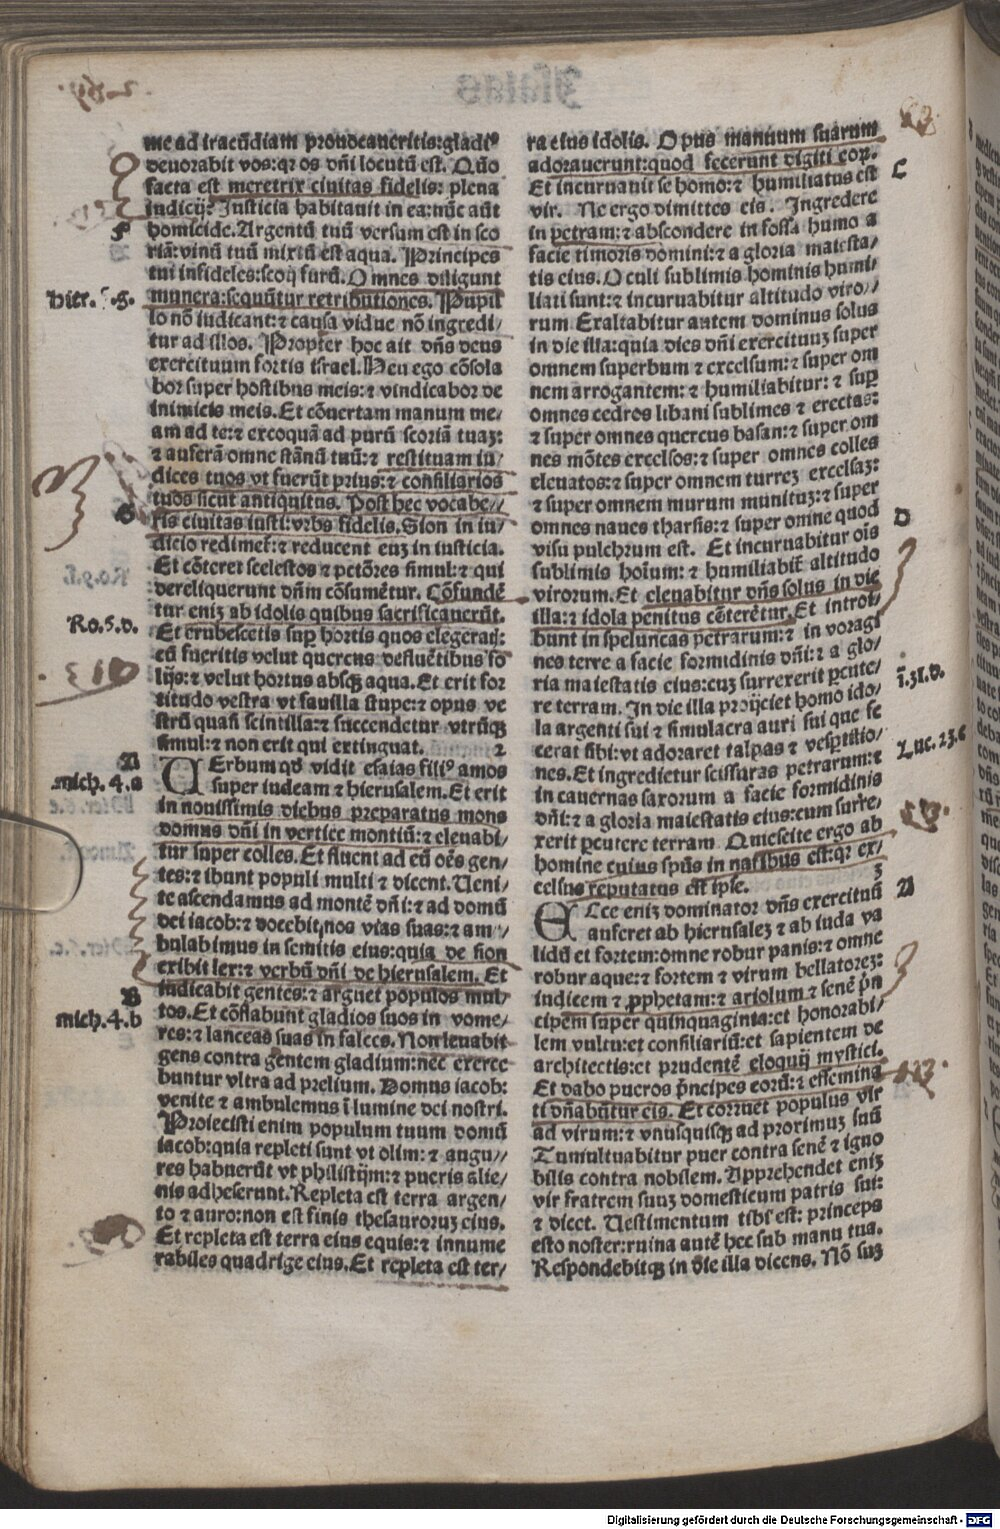 me ad iracūdiam prouocaueritis:gladi⁹
deuorabit vos:qꝛ os dn̄i locutū est. Quō
facta est meretrix ciuitas fidelis: plena
iudicij? Justicia habitauit in ea:nūc aūt
homicide. Argentū tuū versum est in sco
riā: vinū tuū mixtū est aqua. Principes
tui infideles:socij furū. Omnes diligunt
munera:sequūtur retributiones. Pupil
lo nō iudicant:⁊ causa vidue nō ingredi/
tur ad illos. Propter hoc ait dn̄s deus
exercituum fortis israel. Heu ego cōsola
bor super hostibus meis:⁊ vindicabor de
inimicis meis. Et cōuertam manum me/
am ad te:⁊ excoquā ad purū scoriā tuaꝫ:
⁊ auferā omne stānū tuū:⁊ restituam iu/
dices tuos vt fuerūt prius:⁊ consiliarios
tuos sicut antiquitus. Post hec vocabe//
ris ciuitas iusti:vrbs fidelis. Sion in iu/
dicio redimet̄:⁊ reducent eaꝫ in iusticia.
Et cōteret scelestos ⁊ pctōres simul:⁊ qui
dereliquerunt dn̄m cōsumētur. Cōfundē
tur eniꝫ ab idolis quibus sacrificauerūt.
Et erubescetis sup̄ hortis quos elegeratꝭ:
cū fueritis velut quercus defluētibus fo
lijs:⁊ velut hortus absqꝫ aqua. Et erit for
titudo vestra vt fauilla stupe:⁊ opus ve
strū quasi scintilla:⁊ succendetur vtrūqꝫ
simul:⁊ non erit qui extinguat. 2
VErbum qd̄ vidit esaias fili⁹ amos
super iudeam ⁊ hierusalem. Et erit
in nouissimis diebus preparatus mons
domus dn̄i in vertice montiū:⁊ eleuabi/
tur super colles. Et fluent ad eū oēs gen/
tes:⁊ ibunt populi multi ⁊ dicent. Ueni/
te ascendamus ad montē dn̄i:⁊ ad domū
dei iacob:⁊ docebit nos vias suas:⁊ am/
bulabimus in semitis eius:quia de sion
exibit lex:⁊ verbū dn̄i de hierusalem. Et
iudicabit gentes:⁊ arguet populos mul
tos. Et cōflabunt gladios suos in vome/
res:⁊ lanceas suas in falces. Non leuabit
gens contra gentem gladium:nec exerce
buntur vltra ad prelium. Domus iacob:
venite ⁊ ambulemus ī lumine dei nostri.
Proiecisti enim populum tuum domū
iacob:quia repleti sunt vt olim:⁊ augu//
res habuerūt vt philistijm:⁊ pueris alie/
nis adheserunt. Repleta est terra argen/
to ⁊ auro:non est finis thesauroruꝫ eius.
Et repleta est terra eius equis:⁊ innume
rabiles quadrige eius. Et repleta est ter/
F
Hier. 5.g.
G
Ro.5.d.
A
mich.4.a
B
mich.4.b
ra eius idolis. Opus manuum suarum
adorauerunt:quod fecerunt digiti eoꝝ.
Et incuruauit se homo:⁊ humiliatus est
vir. Ne ergo dimittes eis. Ingredere
in petram:⁊ abscondere in fossa humo a
facie timoris domini:⁊ a gloria maiesta/
tis eius. Oculi sublimis hominis humi/
liati sunt:⁊ incuruabitur altitudo viro//
rum. Exaltabitur autem dominus solus
in die illa:quia dies dn̄i exercituuꝫ super
omnem superbum ⁊ excelsum:⁊ super om
nem arrogantem:⁊ humiliabitur:⁊ sup̄
omnes cedros libani sublimes ⁊ erectas:
⁊ super omnes quercus basan:⁊ super om
nes mōtes excelsos:⁊ super omnes colles
eleuatos:⁊ super omnem turreꝫ excelsaꝫ:
⁊ super omnem murum munituꝫ:⁊ super
omnes naues tharsis:⁊ super omne quod
visu pulchrum est. Et incuruabitur oīs
sublimis hoīum:⁊ humiliabit̄ altitudo
virorum. Et eleuabitur dn̄s solus in die
illa:⁊ idola penitus cōterētur. Et introi/
bunt in speluncas petrarum:⁊ in voragi
nes terre a facie formidinis dn̄i:⁊ a glo/
ria maiestatis eius:cuꝫ surrexerit ꝑcute/
re terram. In die illa proijciet homo ido/
la argenti sui ⁊ simulacra auri sui que fe
cerat sibi:vt adoraret talpas ⁊ vesꝑtilio/
nes. Et ingredietur scissuras petrarum:⁊
in cauernas saxorum a facie formidinis
dn̄i:⁊ a gloria maiestatis eius:cum surre/
xerit ꝑcutere terram. Quiescite ergo ab
homine cuius spūs in naribus est:qꝛ ex/
celsus reputatus est ipse. 3
ECce eniꝫ dominator dn̄s exercituū
auferet ab hierusaleꝫ ⁊ ab iuda va
lidū et fortem:omne robur panis:⁊ omne
robur aque:⁊ fortem ⁊ virum bellatoreꝫ:
iudicem ⁊ ꝓphetam:⁊ ariolum ⁊ senē p̄n
cipem super quinquaginta:et honorabi/
lem vultu:et consiliariū:et sapientem de
architectis:et prudentē eloquij mystici.
Et dabo pueros p̄ncipes eorū:⁊ effemina
ti dn̄abūtur eis. Et corruet populus vir
ad virum:⁊ vnusquisqꝫ ad proximuꝫ suū
Tumultuabitur puer contra senē ⁊ igno
bilis contra nobilem. Apprehendet eniꝫ
vir fratrem suuꝫ domesticum patris sui:
⁊ dicet. Uestimentum tibi est: princeps
esto noster:ruina autē hec sub manu tua.
Respondebitqꝫ in die illa dicens. Nō suꝫ
C
D
ī.31.d.
Luc.23.e
A
Digitalisierung gefördert durch die Deutsche Forschungsgemeinschaft - DFG